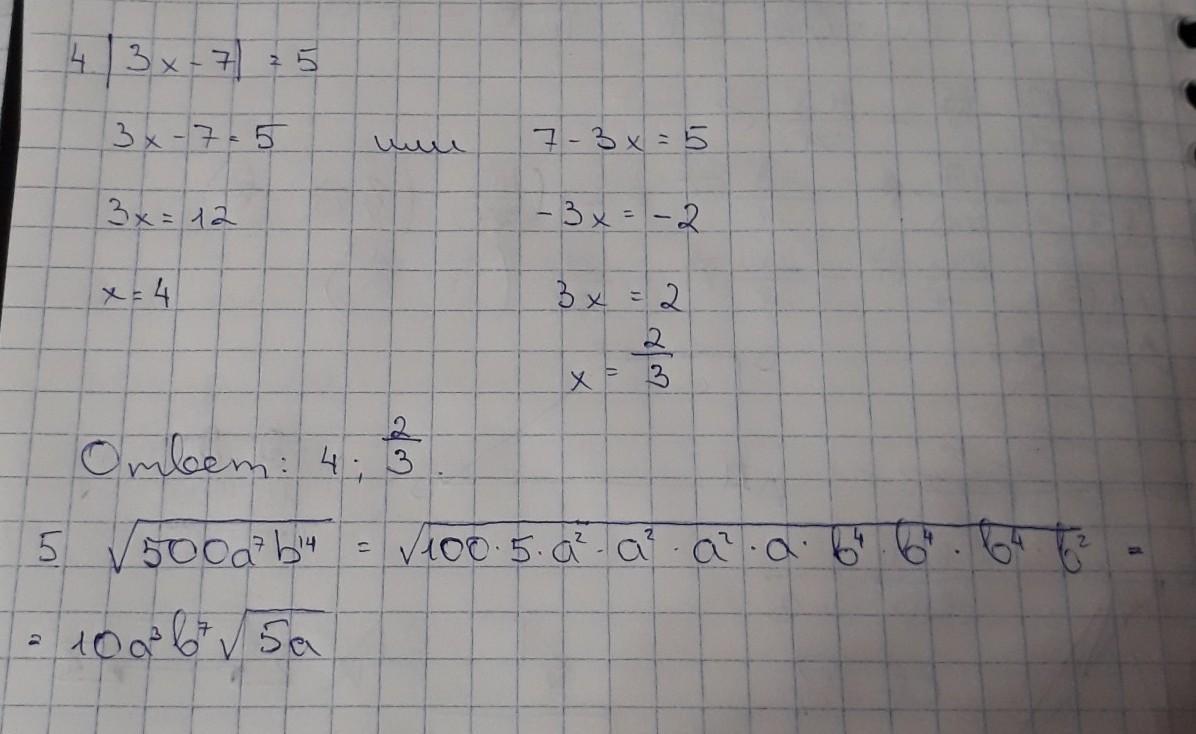 4 |3x - 7| = 5
3x - 7 = 5 или 7 - 3x = 5
3x = 12 -3x = -2
x = 4 3x = 2
x = 2/3
Ответ: 4; 2/3.
5 √(500a⁷b¹⁴) = √(100 · 5 · a² · a² · a² · a · b⁴ · b⁴ · b⁴ b²) =
= 10a³b⁷√(5a)